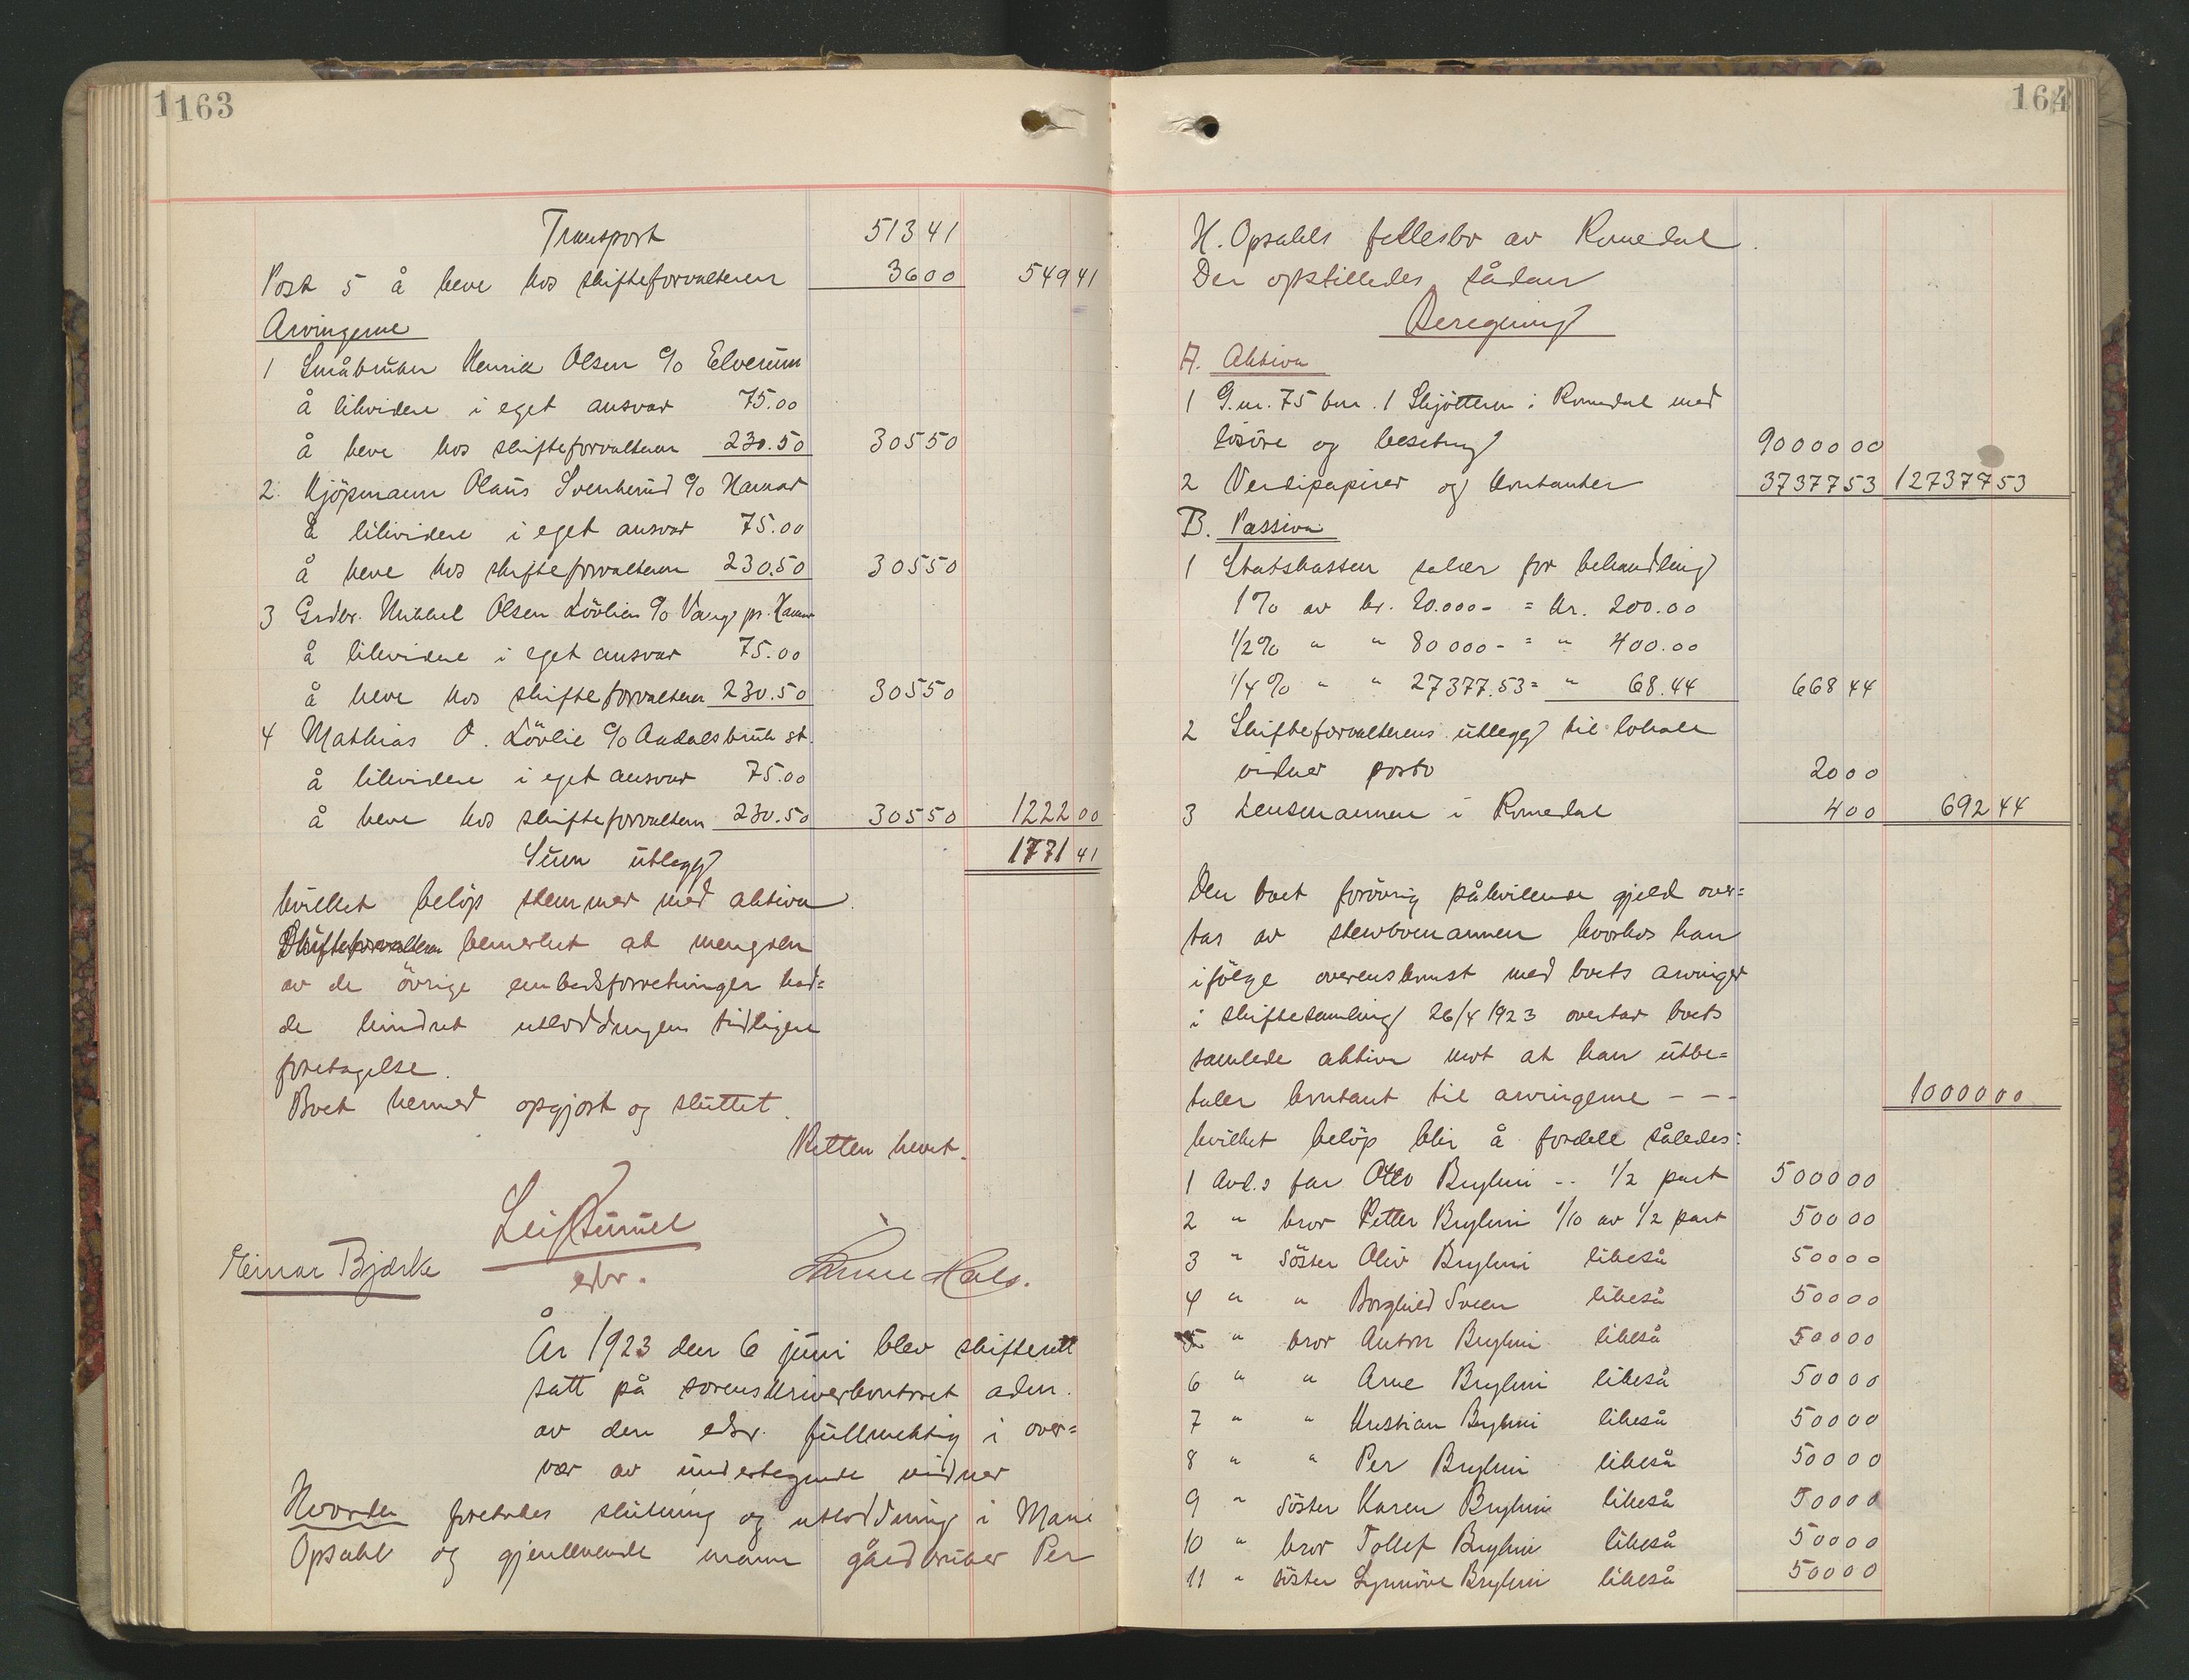 1163
Transport 513 41
Post 5 å heve hos skifteforvalteren 36 00 549 41
Arvingerne
1 Småbruker Henrik Olsen c/o Elverum
å likvidere i eget ansvar 75.00
å heve hos skifteforvalteren 230.50 305 50
2. Kjöpmann Olaus Svenkerud c/o Hamar
å likvidere i eget ansvar 75.00
å heve hos skifteforvalteren 230.50 305 50
3 Grdbr. Mikkel Olsen Lövlien c/o Vang pr. Hamar
å likvidere i eget ansvar 75.00
å heve hos skifteforvalteren 230.50 305 50
4 Mathias O. Lövlie c/o Aadalsbruk st.
å likvidere i eget ansvar 75.00
å heve hos skifteforvalteren 230.50 305 50 1222 00
Sum utlegg 1771 41
hvilket belöp stemmer med aktiva.
Skifteforvalteren bemerket at mengden
av de övrige embedsforretninger had=
de hindret utloddningens tidligere
foretagelse.
Boet hermed opgjort og sluttet.
Retten hevet.
edsv.
Einar Bjærke
År 1923 den 6 juni blev skifterett
satt på sorenskriverkontoret adm.
av den edsv. fullmektig i over=
vær av undertegnede vidner
Hvorda foretokes slutning og utloddning i Mari
Opsahl og gjenlevende mann gårdbruker Per
164
H. Opsahls fellesbo av Romedal.
Der opstilledes sådan
Beregning
A. Aktiva
1 G.nr. 75 bnr. 1 Skjötteren i Romedal med
lösöre og besetning 90000 00
2 Verdipapirer og kontanter 37377 53 127377 53
B. Passiva
1 Statskassen salær for behandling
1% av kr. 20.000- = kr. 200.00
1/2% " " 80 000- = " 400.00
1/4% " " 27377.53 = " 68.44 668 44
2 Skifteforvalterens utlegg til lokale
vidner porto 20 00
3 Lensmannen i Romedal 4 00 692 44
Den boet forövrig påhvilende gjeld over=
tas av stervbomannen hvorhos han
ifölge overenskomst med boets arvinger
i skiftesamling 26/4 1923 overtar boets
samlede aktiva mot at han utbe=
taler kontant til arvingerne - - - 10000 00
hvilket belöp blir å fordele således:
1 Avd.s far Otto Bryhni -- 1/2 part 5000 00
2 " bror Petter Bryhni 1/10 av 1/2 part 500 00
3 " söster Oliv Bryhni likeså 500 00
4 " " Borghild Sveen likeså 500 00
5 " bror Anton Bryhni likeså 500 00
6 " " Arne Bryhni likeså 500 00
7 " " Kristian Bryhni likeså 500 00
8 " " Per Bryhni likeså 500 00
9 " söster Karen Bryhni likeså 500 00
10 " bror Tollef Bryhni likeså 500 00
11 " söster Synnöve Bryhni likeså 500 00